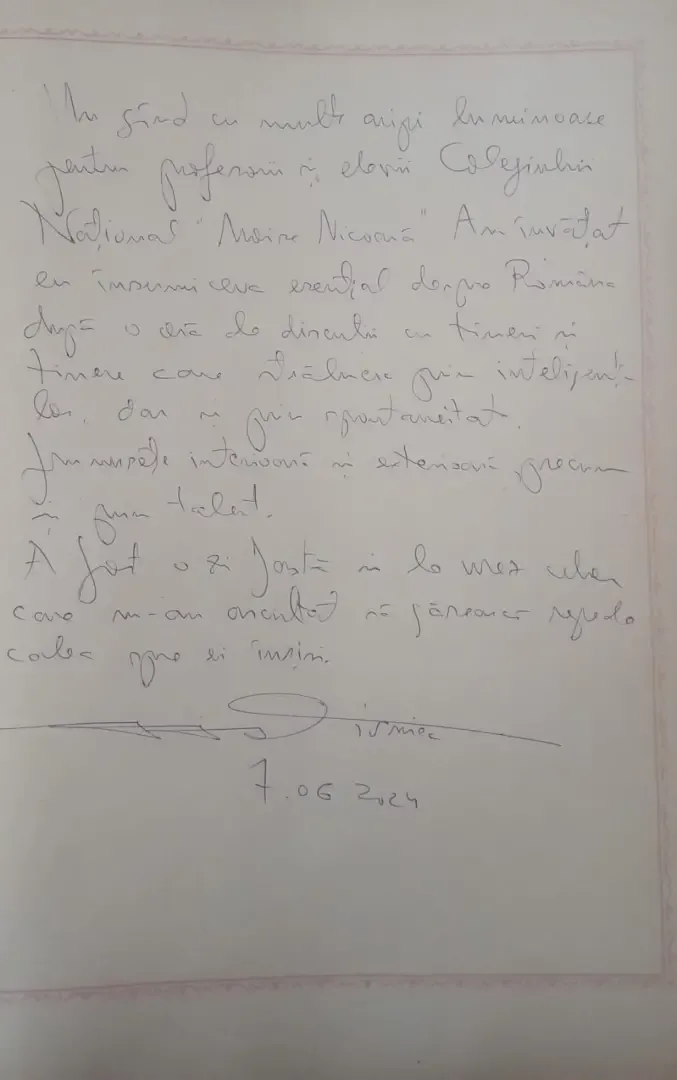 Un gând cu mult aripi luminoase
pentru profesorii și elevii Colegiului
Național "Moise Nicoară" Am învățat
eu însumi ceva esențial despre România
după o oră de discuții cu tineri și
tinere care strălucesc prin inteligența
lor, dar și prin spontaneitate,
frumusețe interioară și exterioară precum
și prin talent.
A fost o zi fastă și le urez celor
care m-au ascultat să găsească repede
calea spre ei înșiși.
Visniec
7.06 2024